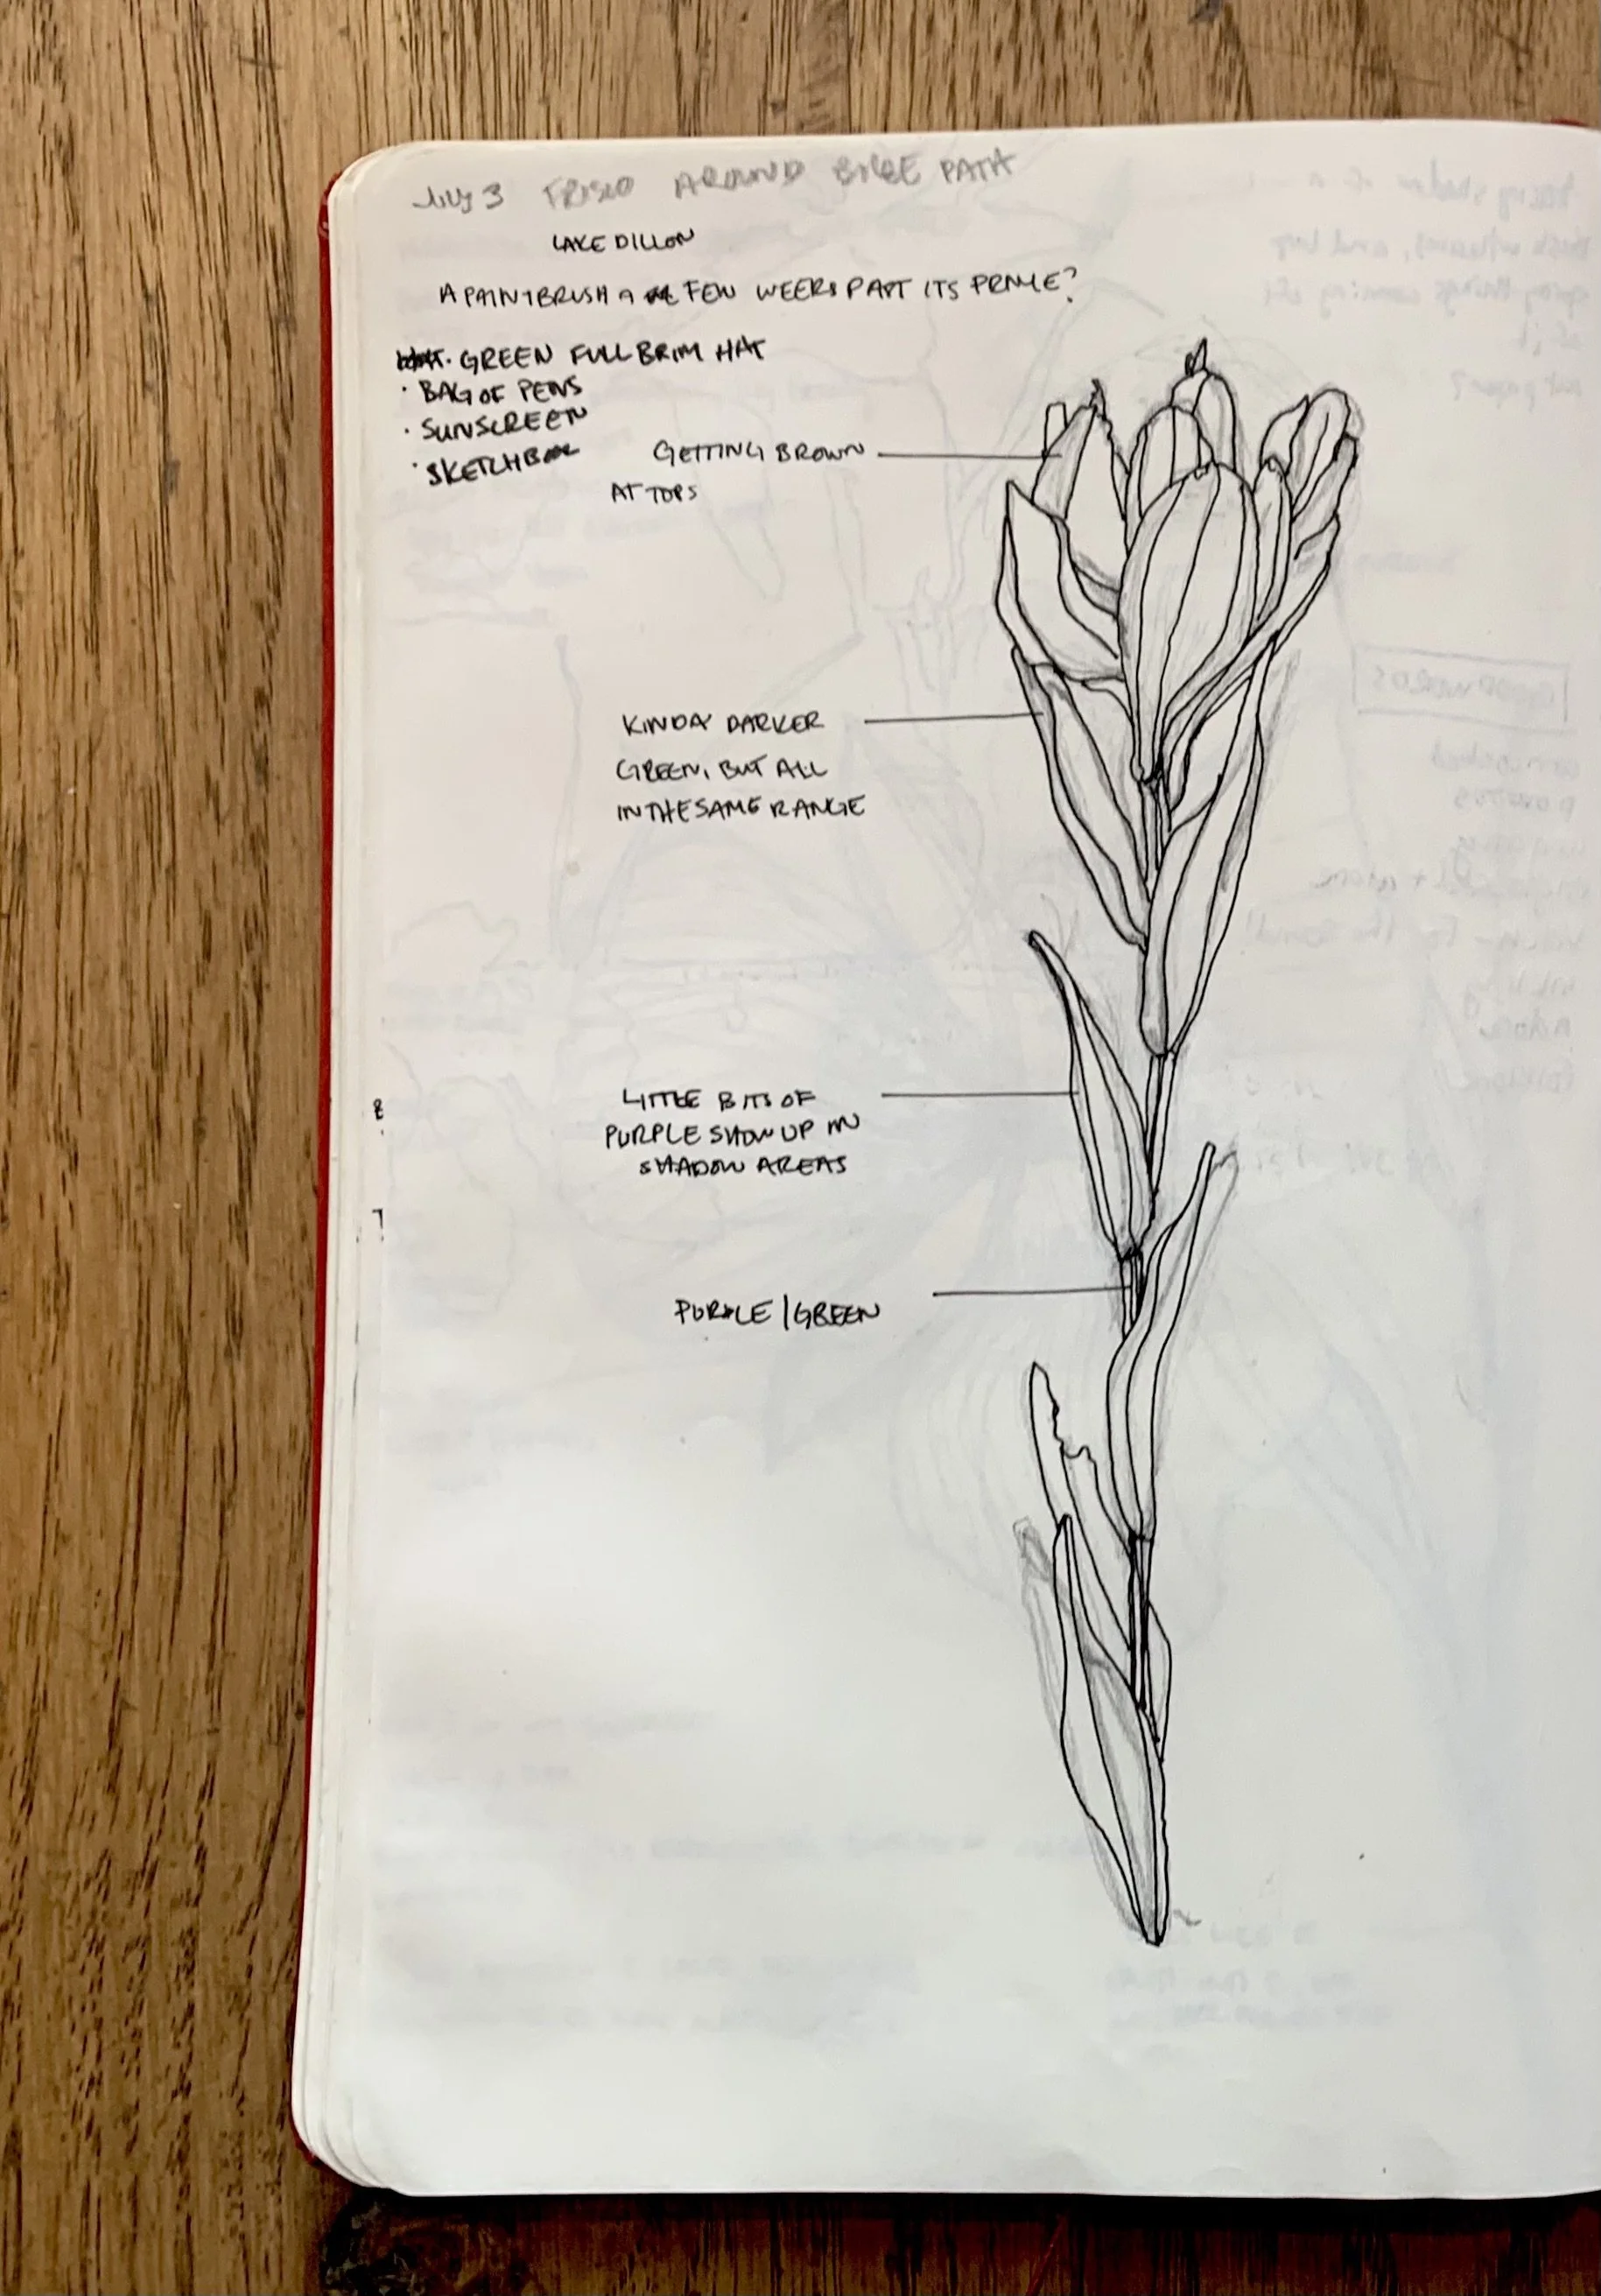 July 3 FRISCO AROUND BIKE PATH
LAKE DILLON
A PAINTBRUSH A FEW WEEKS PAST ITS PRIME?
· GREEN FULL BRIM HAT
· BAG OF PENS
· SUNSCREEN
· SKETCHBOOK
GETTING BROWN
AT TOPS
KINDA DARKER
GREEN, BUT ALL
IN THE SAME RANGE
LITTLE BITS OF
PURPLE SHOW UP IN
SHADOW AREAS
PURPLE/GREEN
GOOD WORDS